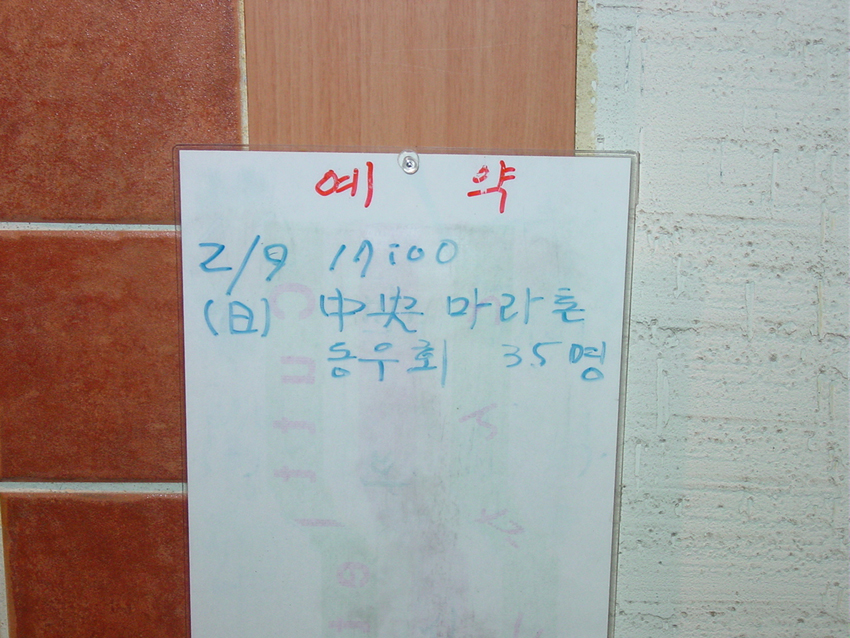 예 약
2/9 17:00
(日) 中央 마라톤
동우회 35명